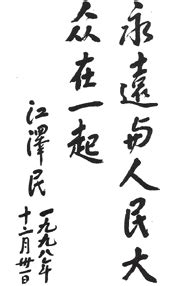 永远与人民大
众在一起
江泽民
一九九八年
十二月卅一日